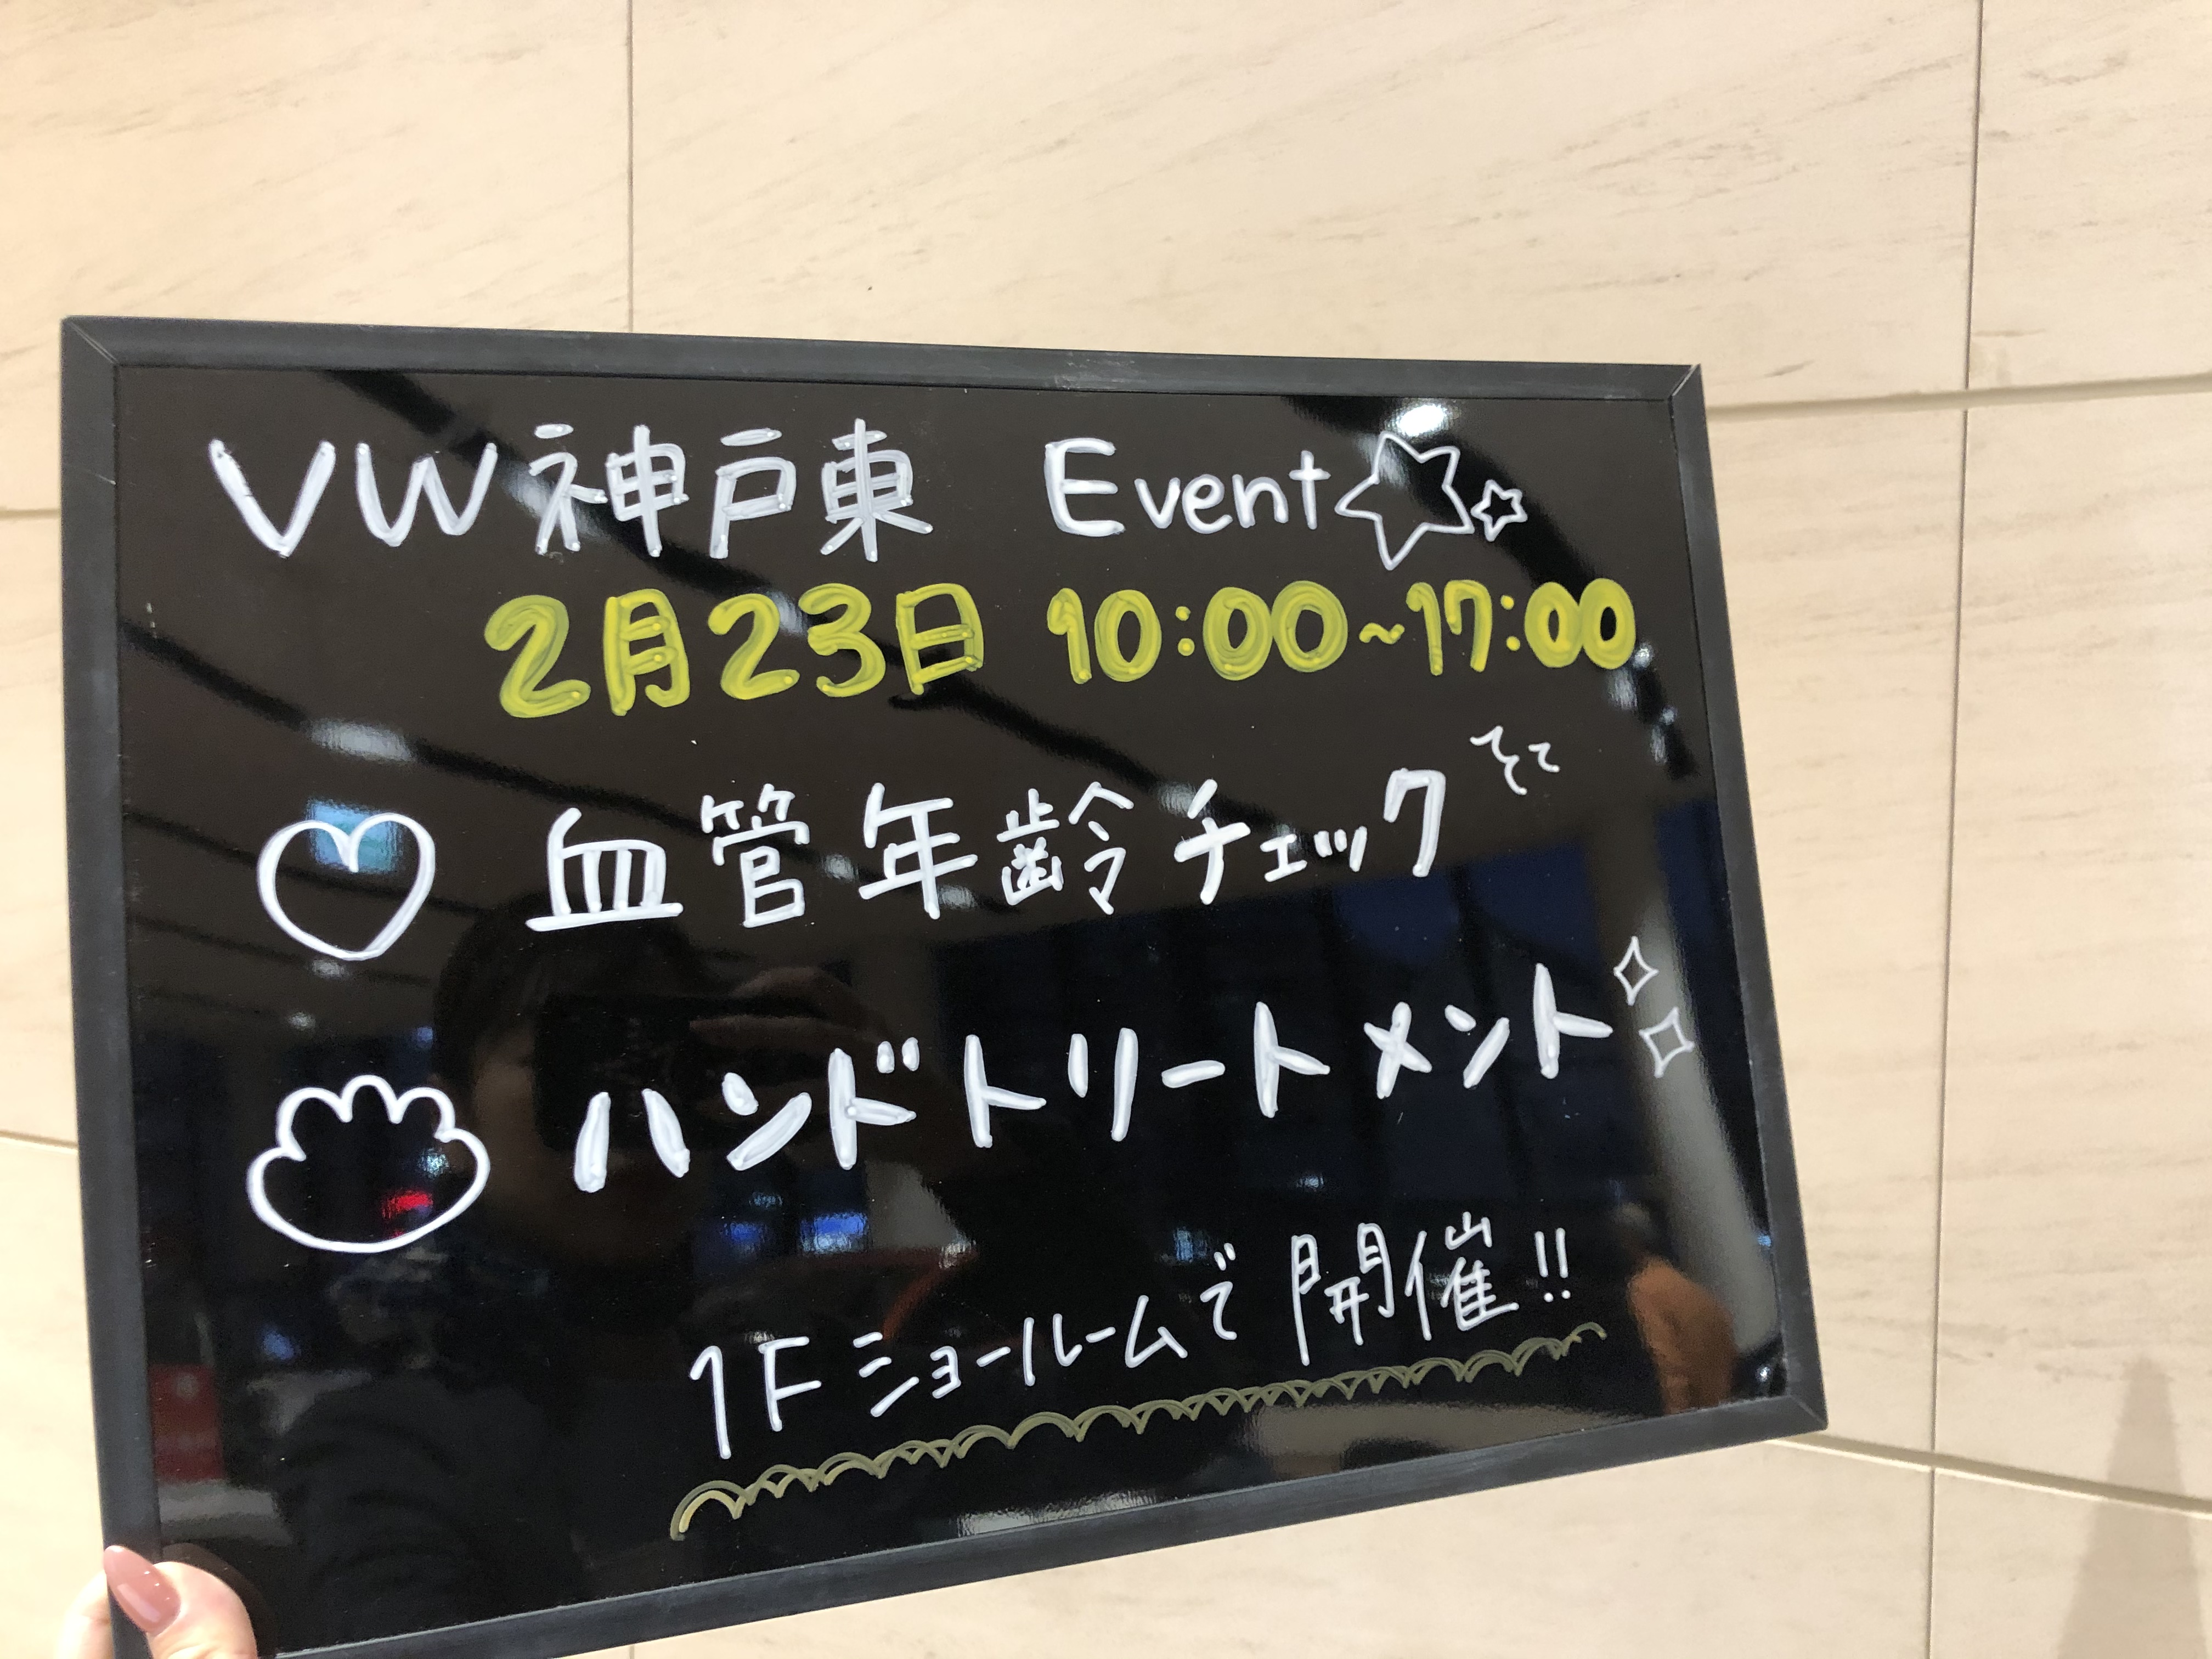 VW神戸東 Event
2月23日 10:00~17:00
血管年齢チェック
ハンドトリートメント
1Fショールームで開催!!